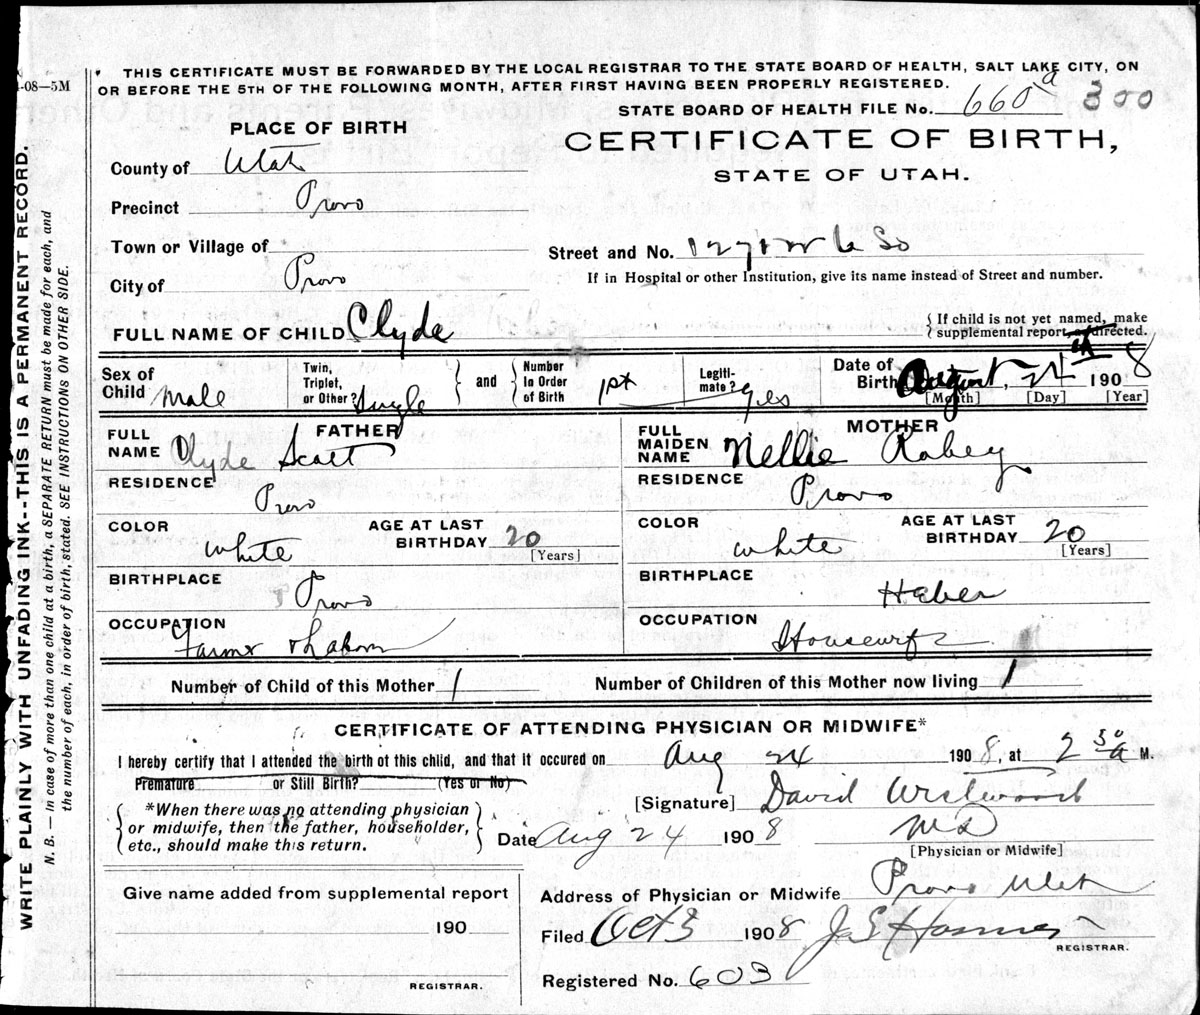 4-08—5M
THIS CERTIFICATE MUST BE FORWARDED BY THE LOCAL REGISTRAR TO THE STATE BOARD OF HEALTH, SALT LAKE CITY, ON
OR BEFORE THE 5TH OF THE FOLLOWING MONTH, AFTER FIRST HAVING BEEN PROPERLY REGISTERED.
STATE BOARD OF HEALTH FILE No. 660 a 300
PLACE OF BIRTH
CERTIFICATE OF BIRTH,
STATE OF UTAH.
County of Utah
Precinct Provo
Town or Village of
Street and No.
If in Hospital or other Institution, give its name instead of Street and number.
City of Provo
FULL NAME OF CHILD Clyde
{ If child is not yet named, make
supplemental report as directed.
Sex of Child Male
Twin, Triplet, or Other? Single
and
Number In Order of Birth 1st
Legiti-mate? yes
Date of Birth August, 24th 1908
[Month] [Day] [Year]
FATHER
FULL NAME Clyde Scott
RESIDENCE Provo
COLOR white
AGE AT LAST BIRTHDAY 20
[Years]
BIRTHPLACE Provo
OCCUPATION Farmer & Laborer
MOTHER
FULL MAIDEN NAME Nellie Rabey
RESIDENCE Provo
COLOR white
AGE AT LAST BIRTHDAY 20
[Years]
BIRTHPLACE Heber
OCCUPATION Housewife
Number of Child of this Mother 1
Number of Children of this Mother now living 1
CERTIFICATE OF ATTENDING PHYSICIAN OR MIDWIFE*
I hereby certify that I attended the birth of this child, and that it occured on Aug 24 1908, at 2 30 a M.
Premature or Still Birth? (Yes or No)
*When there was no attending physician
or midwife, then the father, householder,
etc., should make this return.
[Signature] David Westwood
Date Aug 24 1908 MD
[Physician or Midwife]
Give name added from supplemental report
190
REGISTRAR.
Address of Physician or Midwife Provo Utah
Filed Oct 3 1908
REGISTRAR.
Registered No. 603
WRITE PLAINLY WITH UNFADING INK--THIS IS A PERMANENT RECORD.
N. B. — In case of more than one child at a birth, a SEPARATE RETURN must be made for each, and
the number of each, in order of birth, stated. SEE INSTRUCTIONS ON OTHER SIDE.